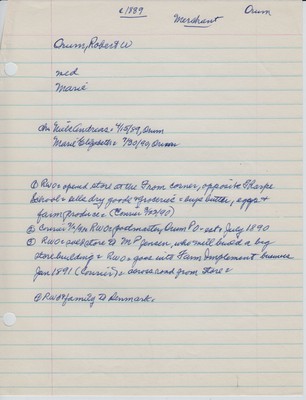 c1889
Merchant
Orum
Orum, Robert W
md
Marie
Ch: Nils Andreas = 4/15/89, Orum
Marie Elizabeth = 7/30/90, Orum
① RWO = opened store at the From corner, opposite Tharpe
School = sells dry goods & groceries = buys butter, eggs &
farm produce = (Courier
② Courier RWO = postmaster, Orum PO = est July 1890
③ RWO = sells store to M P Jensen, who will build a big
store building = RWO = goes into Farm Implement business
Jan 1891 (Courier) = across road from store =
④ RWO & family to Denmark.